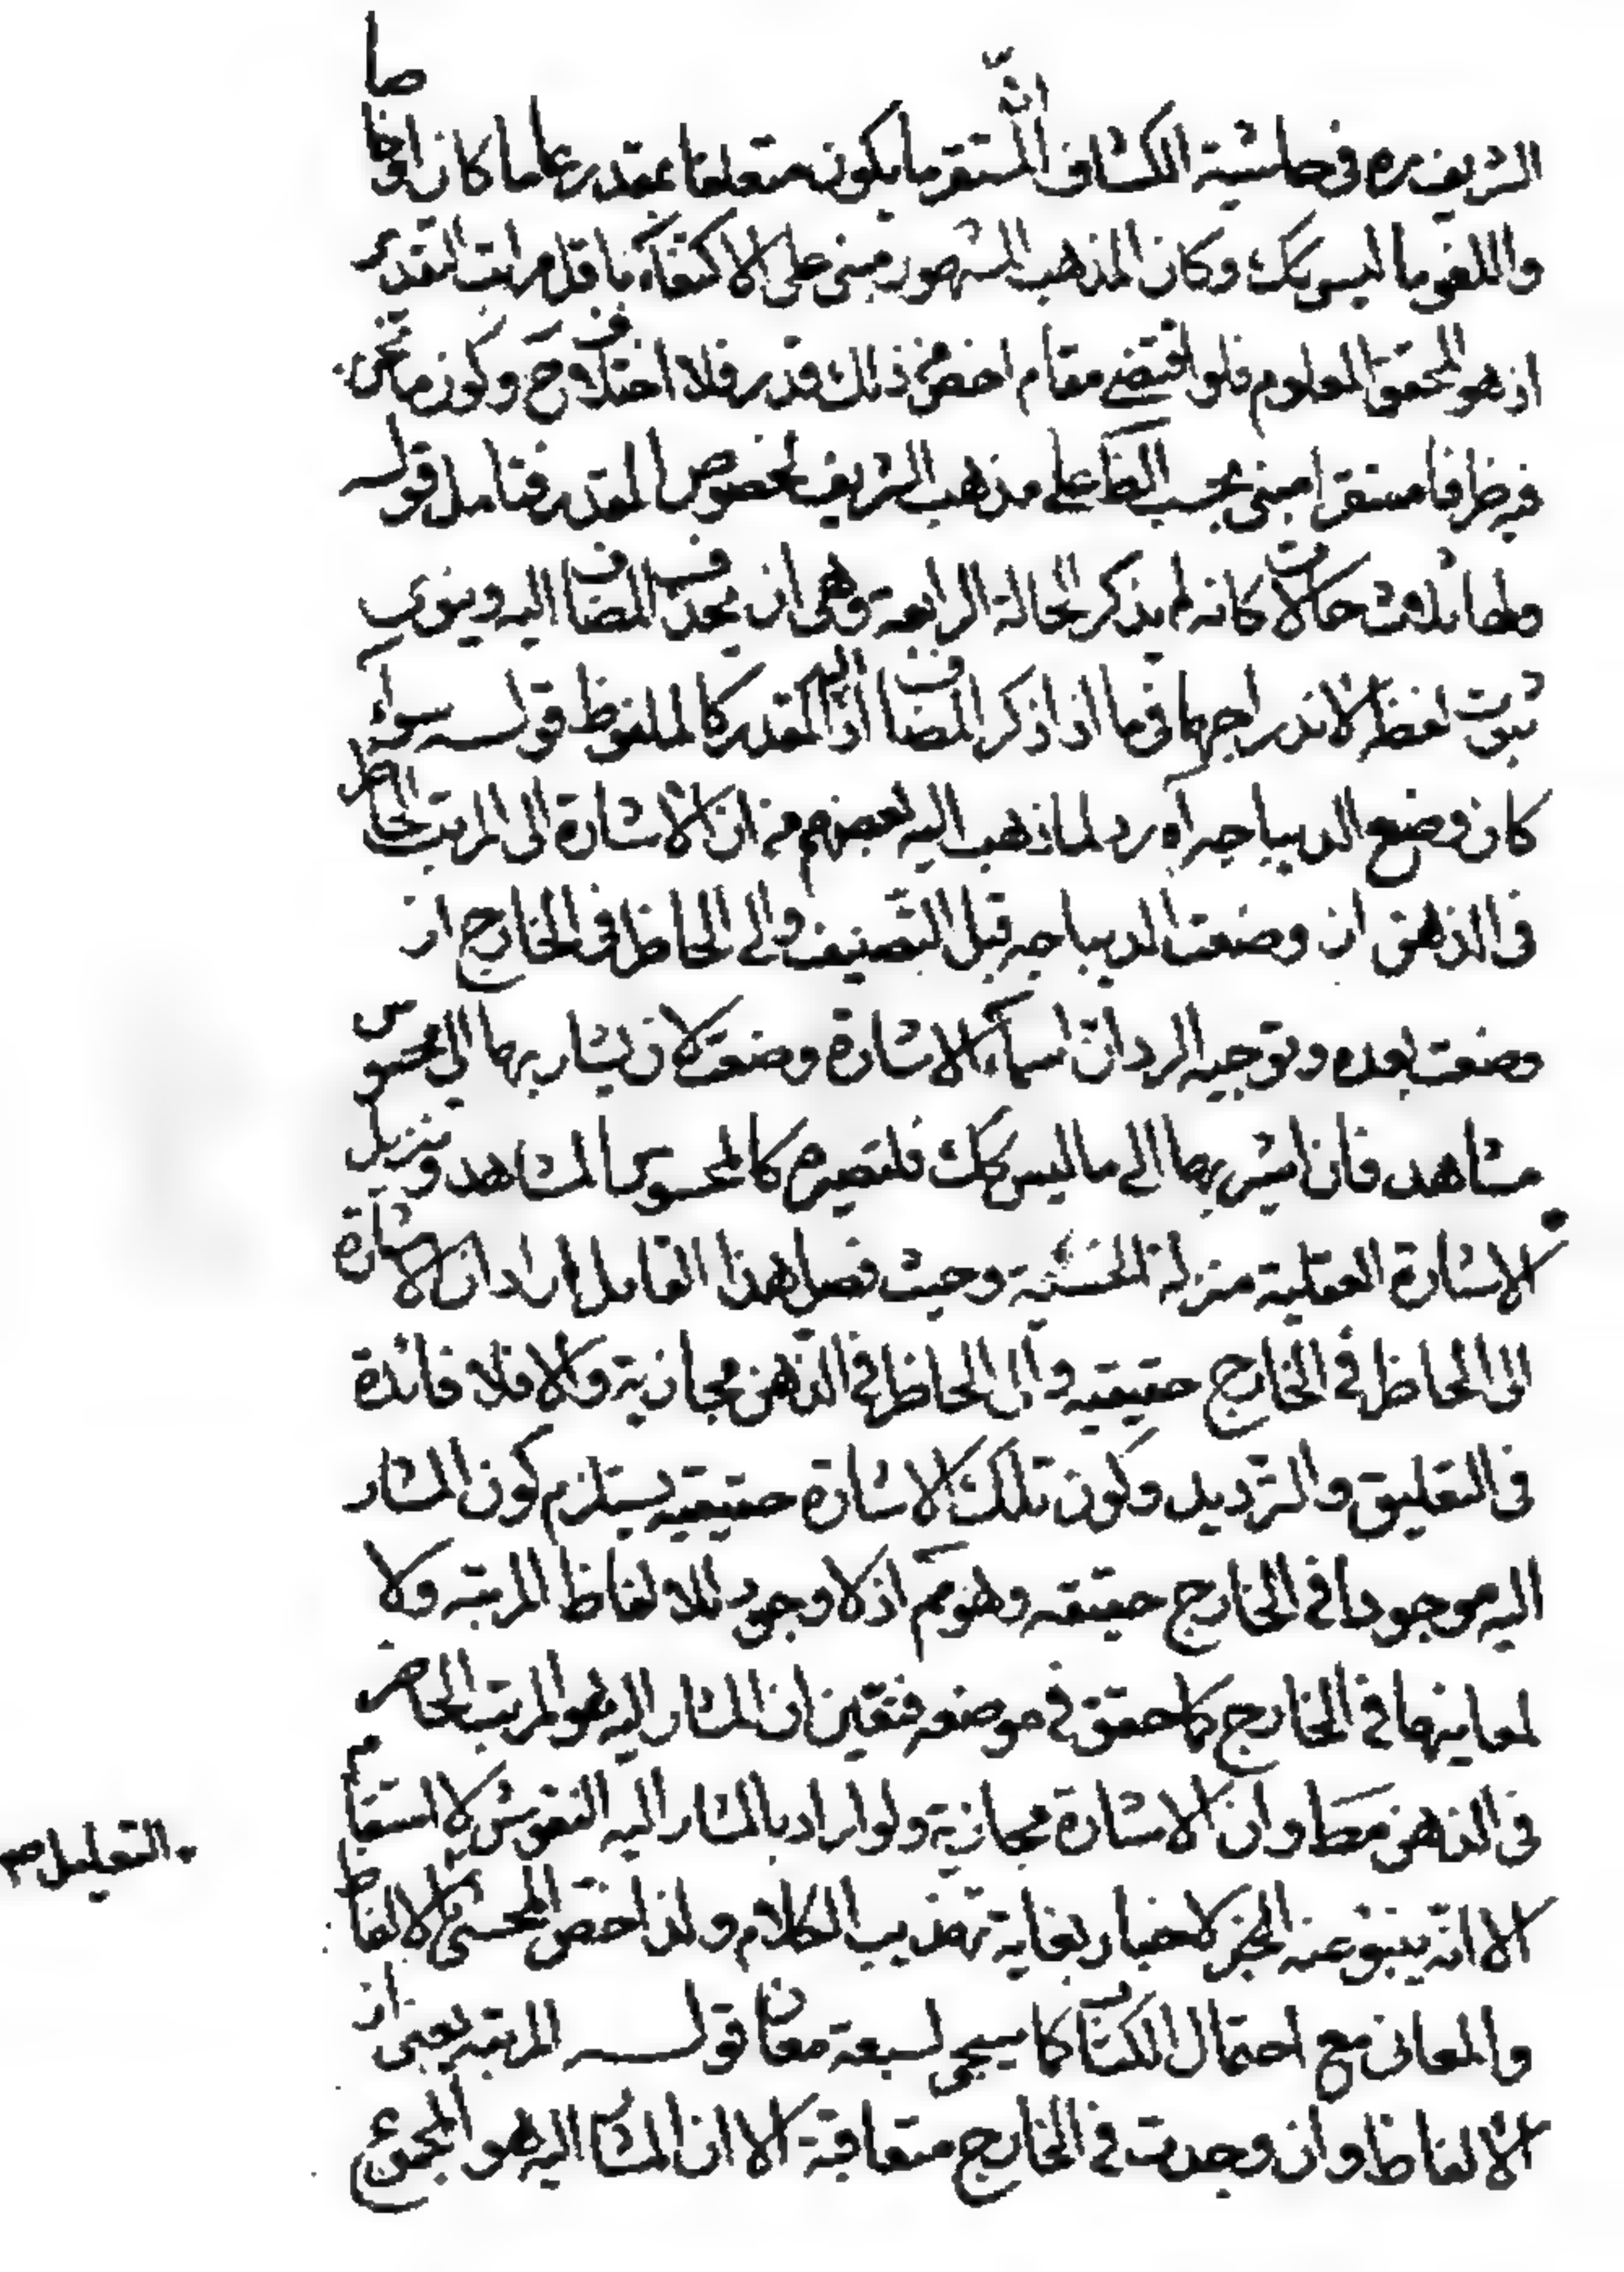 الشريف ره في حاشية الكشاف انّ المستقر ما يكون متعلقا بمقدر عاما كان او خاصا
واللغو ما ليس كك وكان المذهب المشهور مبنى على الاكتفاء باقل مراتب التقدير
اذ هو المحقق المعلوم فلو اقتضى مقام اخص من ذلك قدر فلا اختلاف ح وكون ما نحن
فيه ظرفا مستقرا مبنى بحسب الظ على مذهب الشريف لخصوص المقدر فتامل قوله
ولها ثلاث حالات كانه لم يذكر الحالة الرابعة وهى ان يحذف المضاف اليه وينوى
ثبوت لفظه لاندراجها فيما اذا ذكر المضاف اليه اذ المقدر كالملفوظ قوله سواء
كان وضع الديباجه آه رد لما ذهب اليه بعضهم من ان الاشارة الى المرتب الحاضر
فى الذهن ان وضعت الديباجه قبل التصنيف والى الحاظر فى الخارج ان
وضعت بعده وتوجيه الرد انّ اسماء الاشارة وضعت لان يشار بها الى محسوس
مشاهد فان اشير بها الى ما ليس كك فلتصيره كالمحسوس المشاهد وتنزيل
الاشارة العقلية منزلة الحسّية وحيث فصل هذا القايل اراد ان الاشارة
الى الحاظر فى الخارج حقيقيه والى الحاظر فى الذهن مجازية والا فلا فائدة
فى التعليق والترديد وكون تلك الاشارة حقيقيه يستلزم كون المشار
اليه موجودا فى الخارج حقيقه وهو مم اذ لا وجود للالفاظ المرتبه ولا
لمعاينها فى الخارج كما حقق فى موضعه فتعين ان المشار اليه هو المرتب الحاضر
فى الذهن مط وان الاشارة مجازية ولو اراد بالمشار اليه النقوش لاستقام
التعليل صح
الا انّه ينبو عنه الخبر لاخبار بغاية تهذيب الكلام ولذا خص المحشى الالفاظ
والمعانى مع احتمال الكتاب كما سيجى لسبعة معان قوله المرتبه يعنى ان
الالفاظ وان وجدت فى الخارج متعاقبة الا ان المشار اليه هو المجموع